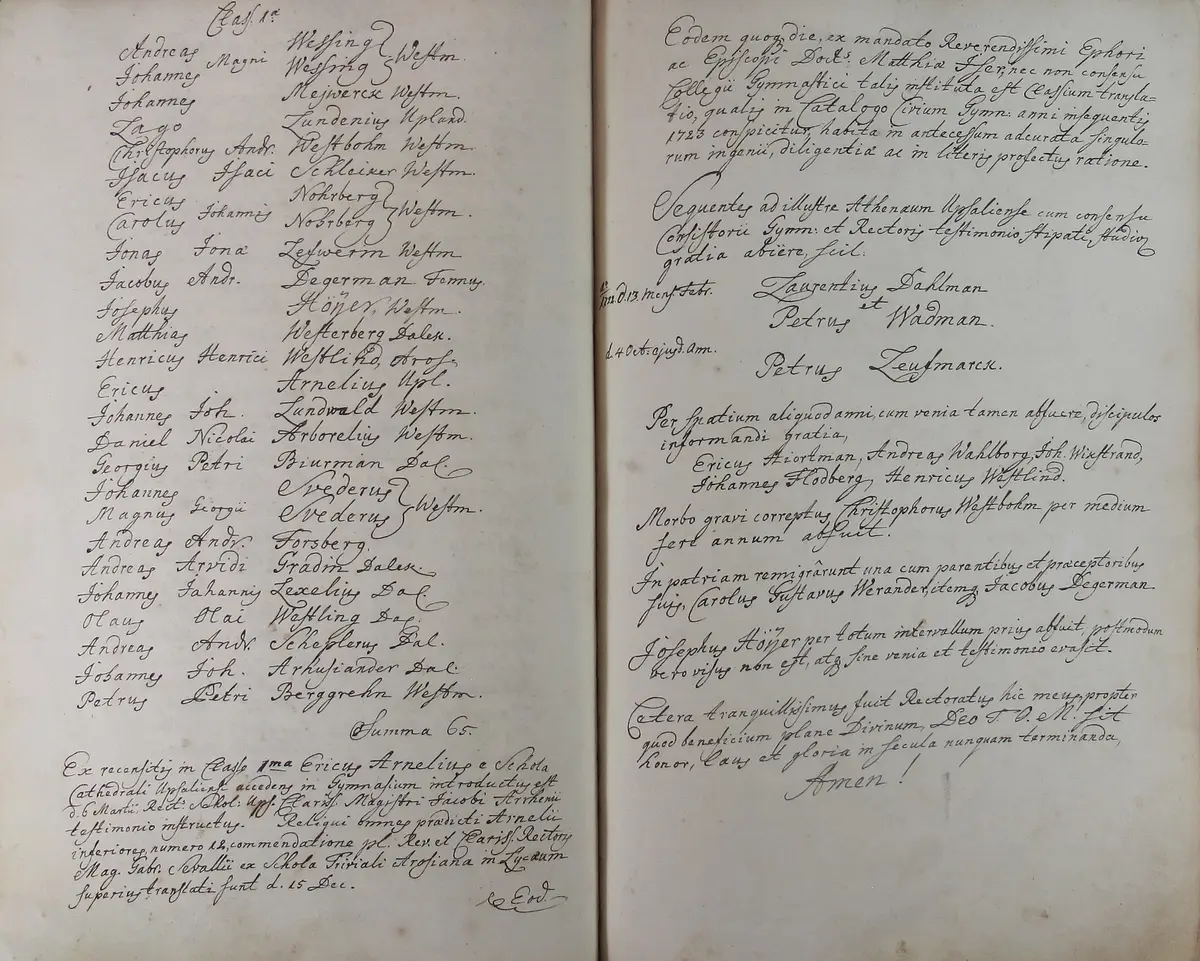 Class. 1.ᵃ
Andreas Magni Wessing } Westm.
Johannes Wessing
Johannes Mejwerck Westm.
Zago Lundenius Upland.
Christophorus Andr. Westbohm Westm.
Isacus Isaci Schleicker Westm.
Ericus Johannis Nohrberg } Westm.
Carolus Nohrberg
Jonas Jonæ Lefwerin Westm
Jacobus Andr. Degerman Fennus.
Josephus Höijer, Westm.
Matthias Westerberg Dalek.
Henricus Henrici Westlind, Aros.
Ericus Arnelius Upl.
Johannes Joh. Lundwald Westm.
Daniel Nicolai Arborelius Westm.
Georgius Petri Biurman Dal.
Johannes Georgii Svederus } Westm.
Magnus Svederus
Andreas Andr. Forsberg.
Andreas Arvidi Gradin Dalek.
Johannes Johannis Lexelius Dal
Olaus Olai Westling Dal.
Andreas Andr. Scheplerus Dal.
Johannes Joh. Arhusiander Dal
Petrus Petri Berggrehn Westm.
Summa 65.
Ex recensitis in Classe 1ma Ericus Arnelius e Schola
Cathedrali Upsaliensi accedens in Gymnasium introductus est
d. 6 Martii, Rect: Schol: Ups. Clariss. Magistri Jacobi Arrhenii
testimonio instructus. Reliqui omnes prædicti Arnelii
inferiores, numero 12, commendatione pl. Rev. et Clariss. Rectoris
Mag. Gabr. Sevallii ex Schola Triviali Arosiana in Lycæum
superius translati sunt d. 15 Dec.
Eod.
Eodem quoq die, ex mandato Reverendissimi Ephori
ac Episcopi Doct.s Matthiæ Iser, nec non consensu
Collegii Gymnastici talis instituta est Classium transla-
tio, qualis in Catalogo Civium Gymn: anni insequentis
1723 conspicitur, habita in antecessum adcurata singulo-
rum ingenii, diligentiæ ac in literis profectus ratione.
Sequentes ad illustre Athenæum Upsaliense cum consensu
Consistorii Gymn: et Rectoris testimonio stipati, studior
gratia abiere, scil.
d. 13. mens. Febr. Laurentius Dahlman
et
Petrus Wadman.
d. 4 Oct. ejusd. Ann. Petrus Leufmarck.
Per spatium aliquod anni, cum venia tamen abfuere, discipulos
informandi gratia,
Ericus Hiortman, Andreas Wahlborg, Joh. Wixstrand,
Johannes Flodberg, Henricus Westlind.
Morbo gravi correptus Christophorus Westbohm per medium
fere annum abfuit.
In patriam remigrârunt una cum parentibus et præceptoribus
suis, Carolus Gustavus Werander, itemq Jacobus Degerman
Josephus Höijer per totum intervallum prius abfuit, postmodum
vero visus non est, atq sine venia et testimonio evasit.
Cetera tranquillissimus fuit Rectoratus hic meus, propter
quod beneficium plane Divinum, Deo T. O. M. sit
honor, laus et gloria in secula nunquam terminanda,
Amen!